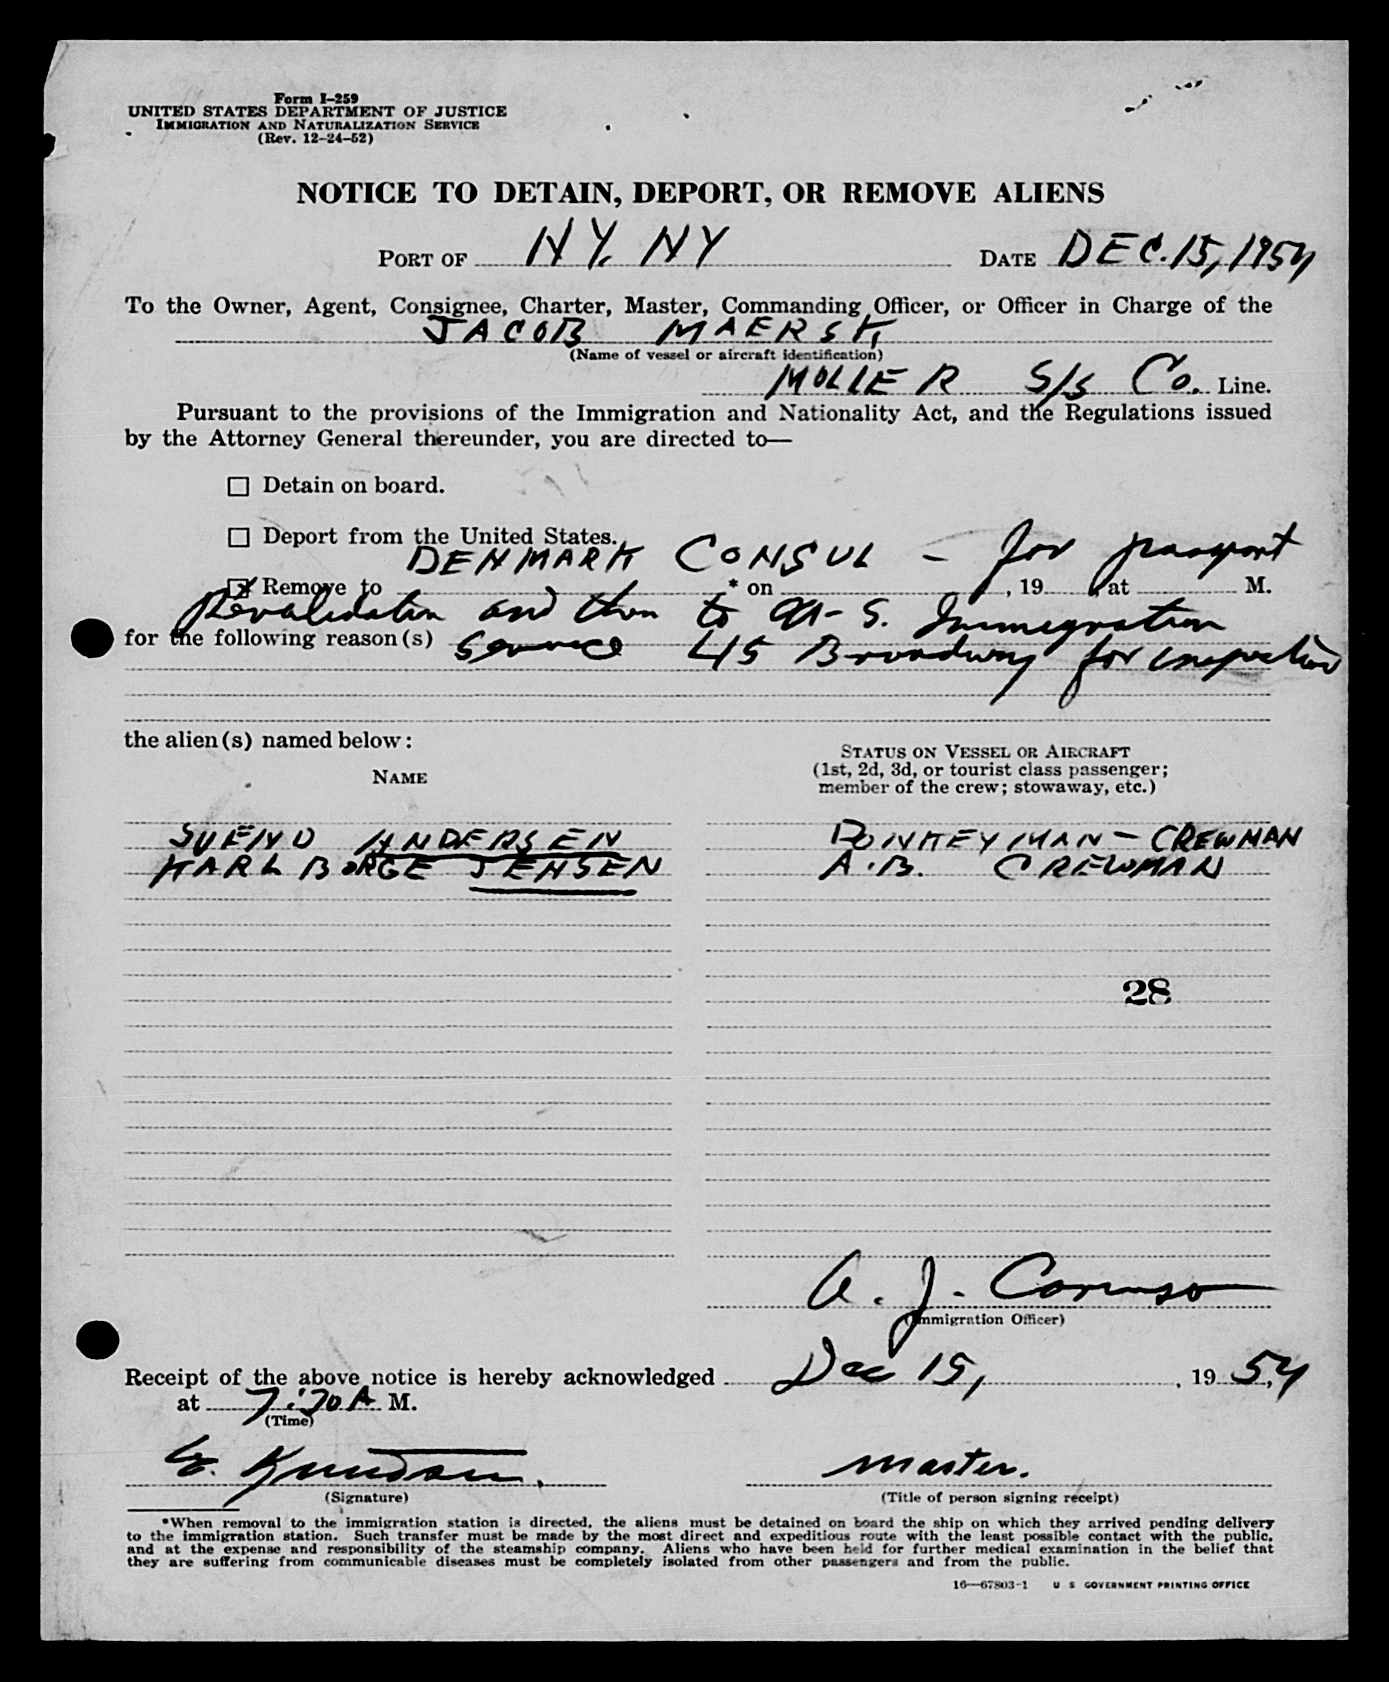 Form I-259
UNITED STATES DEPARTMENT OF JUSTICE
IMMIGRATION AND NATURALIZATION SERVICE
(Rev. 12-24-52)
NOTICE TO DETAIN, DEPORT, OR REMOVE ALIENS
PORT OF NY. NY DATE DEC. 15, 1954
To the Owner, Agent, Consignee, Charter, Master, Commanding Officer, or Officer in Charge of the
JACOB MAERSK
(Name of vessel or aircraft identification)
MOLLER S/S Co. Line.
Pursuant to the provisions of the Immigration and Nationality Act, and the Regulations issued
by the Attorney General thereunder, you are directed to—
☐ Detain on board.
☐ Deport from the United States.
DENMARK CONSUL - for passport
☒ Remove to * on , 19 at M.
Revalidation and then to U-S. Immigration
for the following reason(s) Service 45 Broadway for inspection
the alien(s) named below:
NAME
STATUS ON VESSEL OR AIRCRAFT
(1st, 2d, 3d, or tourist class passenger;
member of the crew; stowaway, etc.)
SVEND ANDERSEN DONKEYMAN - CREWMAN
KARL BORGE JENSEN A.B. CREWMAN
28
A. J. Caruso
(Immigration Officer)
Receipt of the above notice is hereby acknowledged Dec 15, , 19 54
at A M.
(Time)
master.
(Signature) (Title of person signing receipt)
*When removal to the immigration station is directed, the aliens must be detained on board the ship on which they arrived pending delivery
to the immigration station. Such transfer must be made by the most direct and expeditious route with the least possible contact with the public,
and at the expense and responsibility of the steamship company. Aliens who have been held for further medical examination in the belief that
they are suffering from communicable diseases must be completely isolated from other passengers and from the public.
16—67803-1 U S GOVERNMENT PRINTING OFFICE